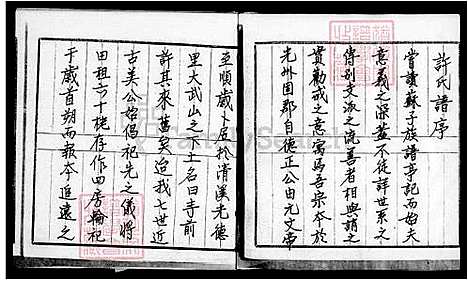 許氏譜序
嘗讀蘇子族譜亭記而始夫
意義之深蓋不徒詳世系之
傳別支派之流善者相與語之
實勸戒之意寓焉吾宗本於
光州固郡自德正公由元文帝
至順歲卜居於清溪光德
里大武山之下土名曰寺前
許其來舊矣迨我七世近
古美公始倡祀先之儀將
田租六十栳存作四房輪祀
于歲首朔而報本追遠之